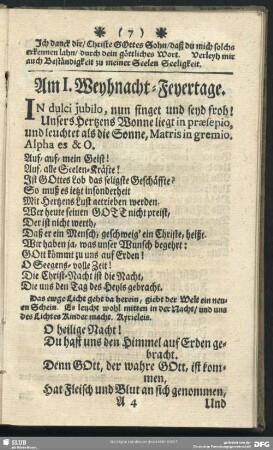 * ( 7 ) *
Ich danck dir/ Christe GOttes Sohn/ daß du mich solchs
erkennen lahn/ durch dein göttliches Wort. Verleyh mir
auch Beständigkeit zu meiner Seelen Seeligkeit.
Am I. Weyhnacht-Feyertage.
IN dulci jubilo, nun singet und seyd froh!
Unsers Hertzens Wonne liegt in præsepio,
und leuchtet als die Sonne, Matris in gremio.
Alpha es & O.
Auf, auf, mein Geist!
Auf, alle Seelen-Kräfte!
Ist GOttes Lob das seligste Geschäffte?
So muß es letzt insonderheit
Mit Hertzens Lust getrieben werden.
Wer heute seinen GOTT nicht preist,
Der ist nicht werth,
Daß er ein Mensch, geschweig' ein Christe, heißt.
Wir haben ja, was unser Wunsch begehrt:
GOtt kömmt zu uns auf Erden!
O Seegens-volle Zeit!
Die Christ-Nacht ist die Nacht,
Die uns den Tag des Heyls gebracht.
Das ewge Licht geht da herein, giebt der Welt ein neu-
en Schein. Es leucht wohl mitten in der Nacht/ und uns
des Lichtes Kinder macht. Kyrieleis.
O heilige Nacht!
Du hast uns den Himmel auf Erden ge-
bracht.
Denn GOtt, der wahre GOtt, ist kom-
men,
Hat Fleisch und Blut an sich genommen,
A 4 Und
SLUB
DFG